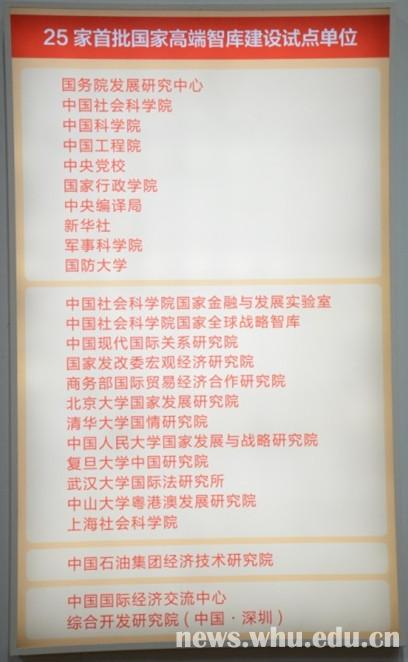 25家首批国家高端智库建设试点单位
国务院发展研究中心
中国社会科学院
中国科学院
中国工程院
中央党校
国家行政学院
中央编译局
新华社
军事科学院
国防大学
中国社会科学院国家金融与发展实验室
中国社会科学院国家全球战略智库
中国现代国际关系研究院
国家发改委宏观经济研究院
商务部国际贸易经济合作研究院
北京大学国家发展研究院
清华大学国情研究院
中国人民大学国家发展与战略研究院
复旦大学中国研究院
武汉大学国际法研究所
中山大学粤港澳发展研究院
上海社会科学院
中国石油集团经济技术研究院
中国国际经济交流中心
综合开发研究院（中国·深圳）
news.whu.edu.cn